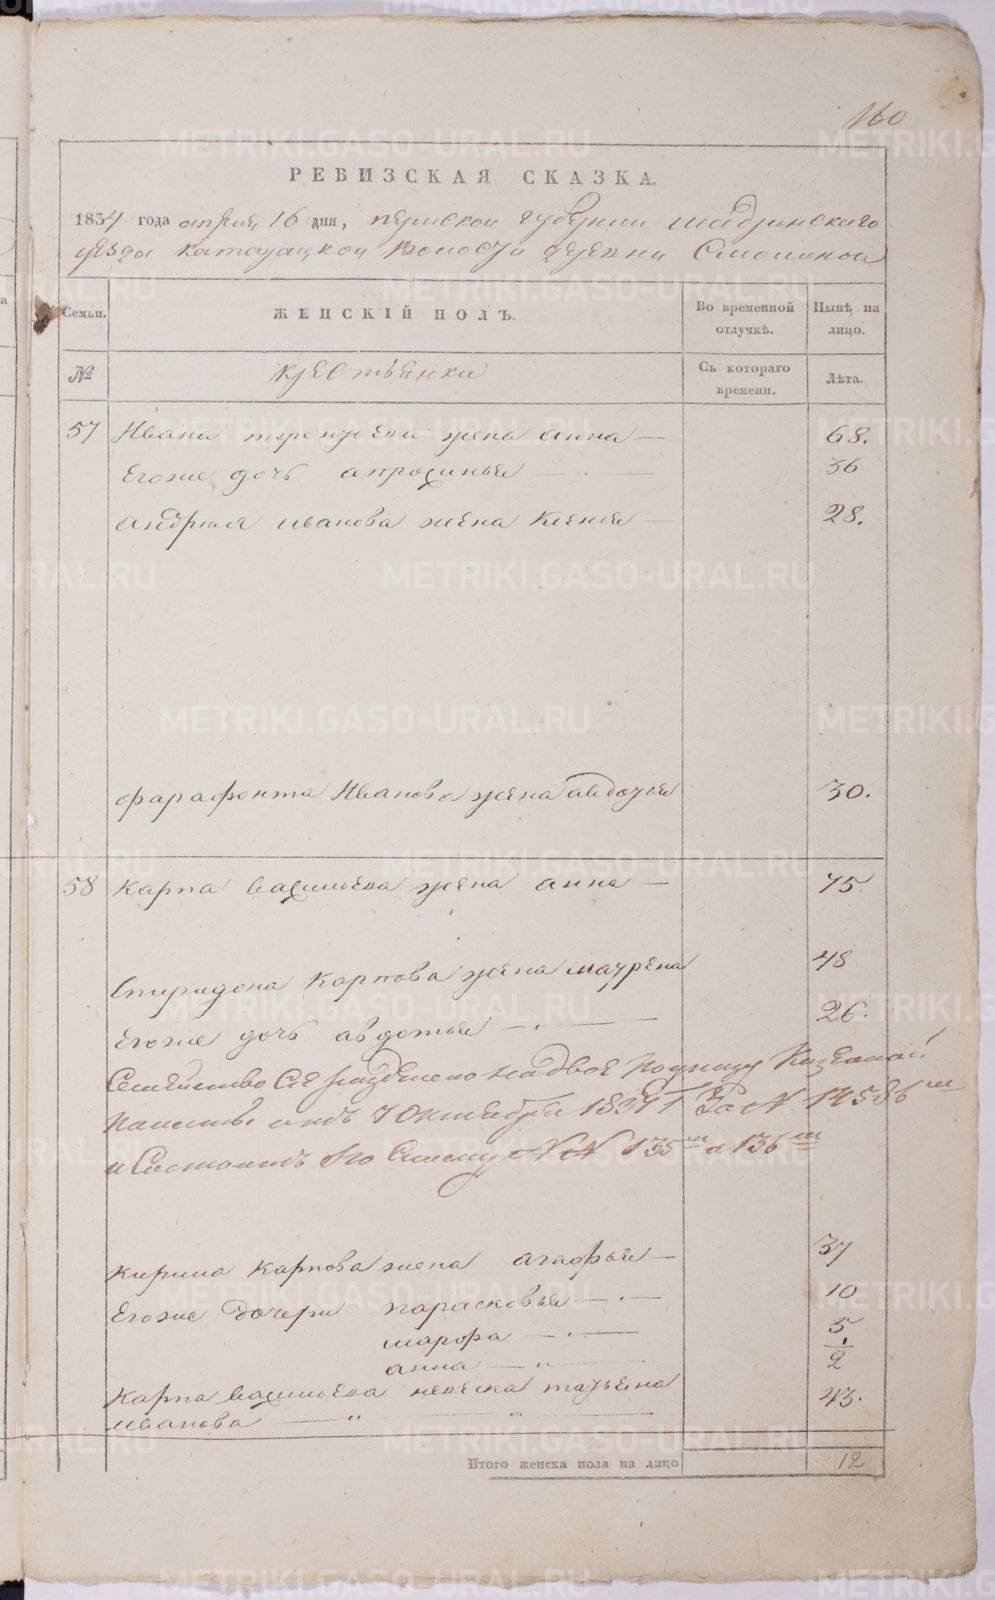 160
РЕВИЗСКАЯ СКАЗКА.
1834 года апреля 16 дня, пермской губернии шадринского
уезда катайской волости деревни
Семьи. ЖЕНСКІЙ ПОЛЪ. Во временной отлучкѣ. Нынѣ на лицо.
№ крестьянки Съ котораго времени. Лѣта.
57 Ивана терентьева жена анна — 68.
Егоже дочь апросинья — 36
андрея иванова жена Ксенья — 28.
фарафонта Иванова жена авдотья 30.
58 Карпа васильева жена анна — 75.
Спиридона Карпова жена маурена 48
Егоже дочь авдотья — 26.
Семейство Сіе разделено надвое По указу Казенной
Палаты отъ 7 Октября 1834 г За №
и Состоитъ по Списку №№ 135 и 136
Кирила Карпова жена агафья — 37
Егоже Дочери парасковья — 10
марфа — 5
анна — 1/2
Карпа васильева невеска татьяна 43.
иванова — " — " —
Итого женска пола на лицо 12
METRIKI.GASO-URAL.RU